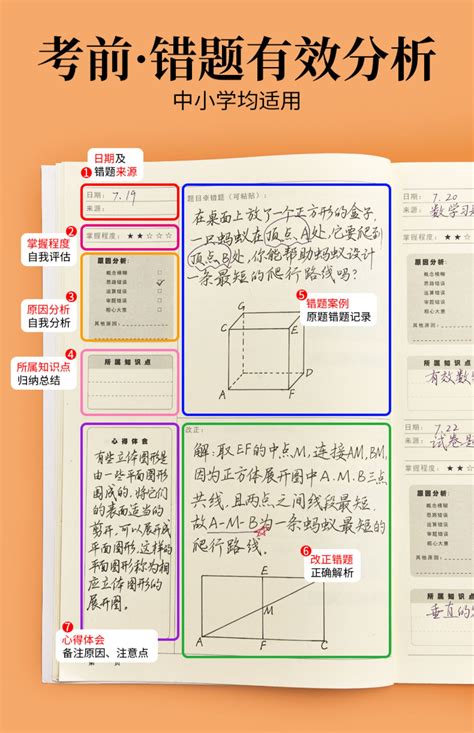 考前·错题有效分析
中小学均适用
日期及
1 错题来源
日期: 7.19
来源:
2
掌握程度
自我评估
掌握程度: ★★☆☆☆
原因分析:
概念模糊
思路错误 ✓
运算错误
审题错误
粗心大意
其他原因:
3
原因分析
自我分析
4
所属知识点
归纳总结
所属知识点
题目幸错题 (可粘贴):
在桌面上放了一个正方形的盒子,
一只蚂蚁在顶点A处,它要爬到
顶点B处,你能帮助蚂蚁设计
一条最短的爬行路线吗?
5 错题案例
原题错题记录
G
C
E
A
D
F
心得体会
有些立体图形是
由一些平面图形
围成的,将它们
的表面适当的
剪开,可以展开成
平面图形,这样的
平面图形称为相
应立体图形的
展开图。
7
心得体会
备注原因、注意点
第 页
改正:
解:取EF的中点M,连接AM,BM,
因为正方体展开图中A.M.B三点
共线,且两点之间线段最短,
故A-M-B为一条蚂蚁最短的
爬行路线。
6 改正错题
正确解析
E
M
A
F
C
日期: 7.20
来源: 数学习
掌握程度:
原因分析:
概念模糊
思路错误
运算错误
审题错误
粗心大意
其他原因:
所属知识
有效数
日期: 7.22
来源: 试卷
掌握程度:
原因分析:
概念模糊
思路错误
运算错误
审题错误
粗心大意
其他原因:
所属知识
垂直的